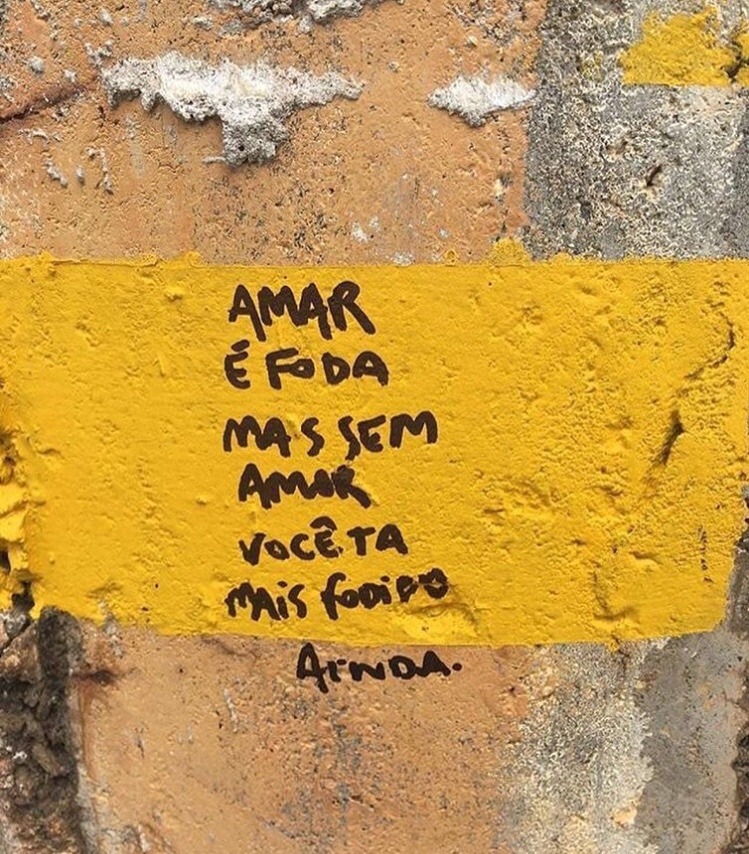 AMAR
É FODA
MAS SEM
AMOR
VOCÊ TA
MAIS FODIDO
AINDA.